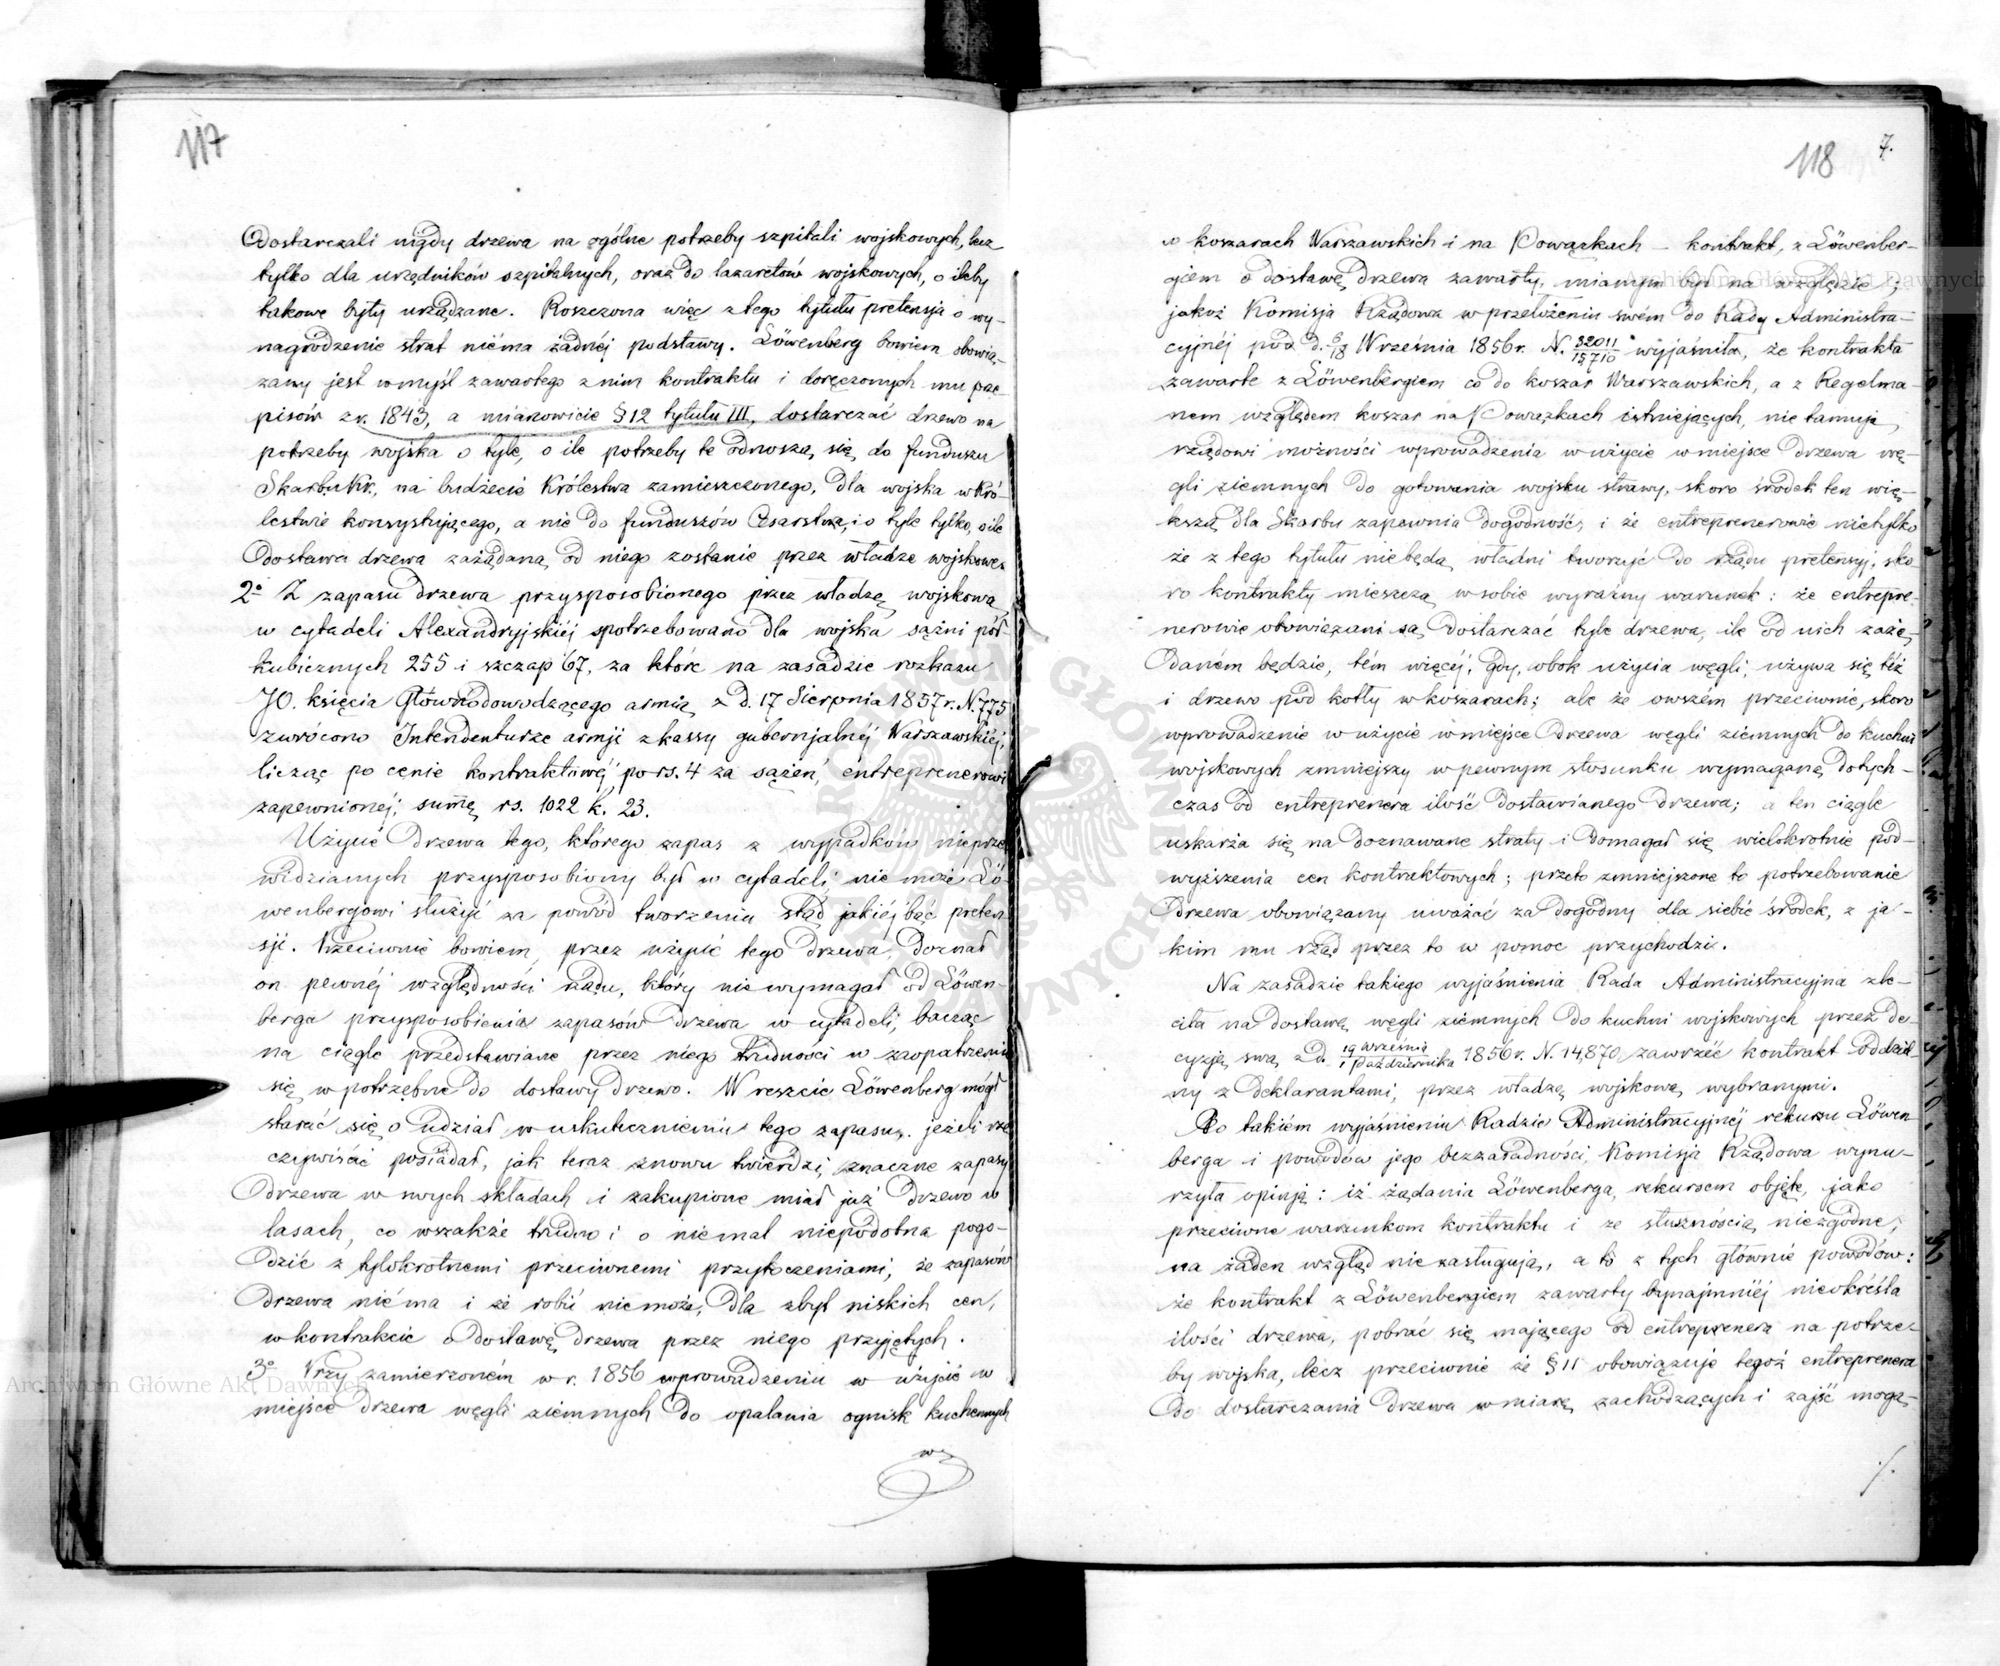 117
dostarczali nigdy drzewa na ogólne potrzeby szpitali wojskowych, lecz
tylko dla urzędników szpitalnych, oraz do lazaretów wojskowych, o ileby
takowe były urządzane. Roszczona więc z tego tytułu pretensja o wy-
nagrodzenie strat niéma żadnéj podstawy. Löwenberg bowiem obowią-
zany jest w myśl zawartego z nim kontraktu i doręczonych mu prze
pisów z r. 1843, a mianowicie § 12 tytułu III, dostarczać drzewo na
potrzeby wojska o tyle, o ile potrzeby te odnoszą się do funduszu
Skarbu Kr., na budżecie Królestwa zamieszczonego, dla wojska w Kró-
lestwie konsystującego, a nie do funduszów Cesarstwa, i o tyle tylko, o ile
dostawa drzewa zażądaną od niego zostanie przez władze wojskowe.
2o Z zapasu drzewa przysposobionego przez władzę wojskową
w cytadeli Alexandryjskiéj spotrzebowano dla wojska sążni pół
kubicznych 255 i szczap 67, za które na zasadzie rozkazu
JO. księcia Głównodowodzącego armią z d. 17 Sierpnia 1857 r. N. 775
zwrócono Intendenturze armji z kassy gubernjalnéj Warszawskiéj,
licząc po cenie kontraktowéj po rs. 4 za sążeń, entreprenerowi
zapewnionéj, summę rs. 1022 k. 23.
Użycie drzewa tego, którego zapas z wypadków nieprze
widzianych przysposobiony był w cytadeli, nie może Lö-
wenbergowi służyć za powód tworzenia stąd jakiéj bąć preten
sji. Przeciwnie bowiem, przez użycie tego drzewa, doznał
on pewnéj względności rządu, który nie wymagał od Löwen-
berga przysposobienia zapasów drzewa w cytadeli, bacząc
na ciągle przedstawiane przez niego trudności w zaopatrzeniu
się w potrzebne do dostawy drzewo. Wreszcie Löwenberg mógł
starać się o udział w uskutecznieniu tego zapasu, jeżeli rze
czywiście posiadał, jak teraz znowu twierdzi, znaczne zapasy
drzewa w swych składach i zakupione miał już drzewo w
lasach, co wszakże trudno i o niemal niepodobna pogo-
dzić z tylokrotnemi przeciwnemi przytoczeniami, że zapasów
drzewa niéma i że robić nie może, dla zbyt niskich cen,
w kontrakcie o dostawę drzewa przez niego przyjętych.
3o Przy zamierzoném w r. 1856 wprowadzeniu w użycie w
miejsce drzewa węgli ziemnych do opalania ognisk kuchennych
118
7.
w koszarach Warszawskich i na Powązkach – kontrakt, z Löwenber-
giem o dostawę drzewa zawarty, mianym był na względzie;
jakoż Komisja Rządowa w przełożeniu swém do Rady Administra-
cyjnéj pod d. 6/18 Września 1856 r. N. 32011/15710 wyjaśniła, że kontrakta
zawarte z Löwenbergiem co do koszar Warszawskich, a z Regelma-
nem względem koszar na Powązkach istniejących, nie tamują
rządowi możności wprowadzenia w użycie w miejsce drzewa wę-
gli ziemnych do gotowania wojsku strawy, skoro środek ten wię-
kszą dla Skarbu zapewnia dogodność, i że entreprenerowie nietylko
że z tego tytułu nie będą władni tworzyć do rządu pretensyj, sko-
ro kontrakty mieszczą w sobie wyraźny warunek: że entrepre-
nerowie obowiązani są dostarczać tyle drzewa, ile od nich zażą-
daném będzie, tém więcéj, gdy, obok użycia węgli, używa się też
i drzewo pod kotły w koszarach; ale że owszém przeciwnie, skoro
wprowadzenie w użycie w miejsce drzewa węgli ziemnych do kuchni
wojskowych zmniejszy w pewnym stosunku wymaganą dotych-
czas od entreprenera ilość dostawianego drzewa; a ten ciągle
uskarża się na doznawane straty i domagał się wielokrotnie pod-
wyższenia cen kontraktowych; przeto zmniejszone to potrzebowanie
drzewa obowiązany uważać za dogodny dla siebie środek, z ja-
kim mu rząd przez to w pomoc przychodzi.
Na zasadzie takiego wyjaśnienia Rada Administracyjna zle-
ciła na dostawę węgli ziemnych do kuchni wojskowych przez de-
cyzją swą z d. 19 Września/1 Października 1856 r. N. 14,870, zawrzéć kontrakt oddziel-
ny z deklarantami, przez władzę wojskową wybranymi.
Po takiém wyjaśnieniu Radzie Administracyjnéj rekursu Löwen
berga i powodów jego bezzasadności, Komisja Rządowa wynu-
rzyła opinją: iż żądania Löwenberga, rekursem objęte, jako
przeciwne warunkom kontraktu i ze słusznością niezgodne,
na żaden wzgląd nie zasługują, a to z tych głównie powodów:
że kontrakt z Löwenbergiem zawarty bynajmniéj nieokréśla
ilości drzewa, pobrać się mającego od entreprenera na potrze-
by wojska, lecz przeciwnie że § 11 obowiązuje tegoż entreprenera
do dostarczania drzewa w miarę zachodzących i zajść mogą-
./.
Archiwum Główne Akt Dawnych
Archiwum Główne Akt Dawnych